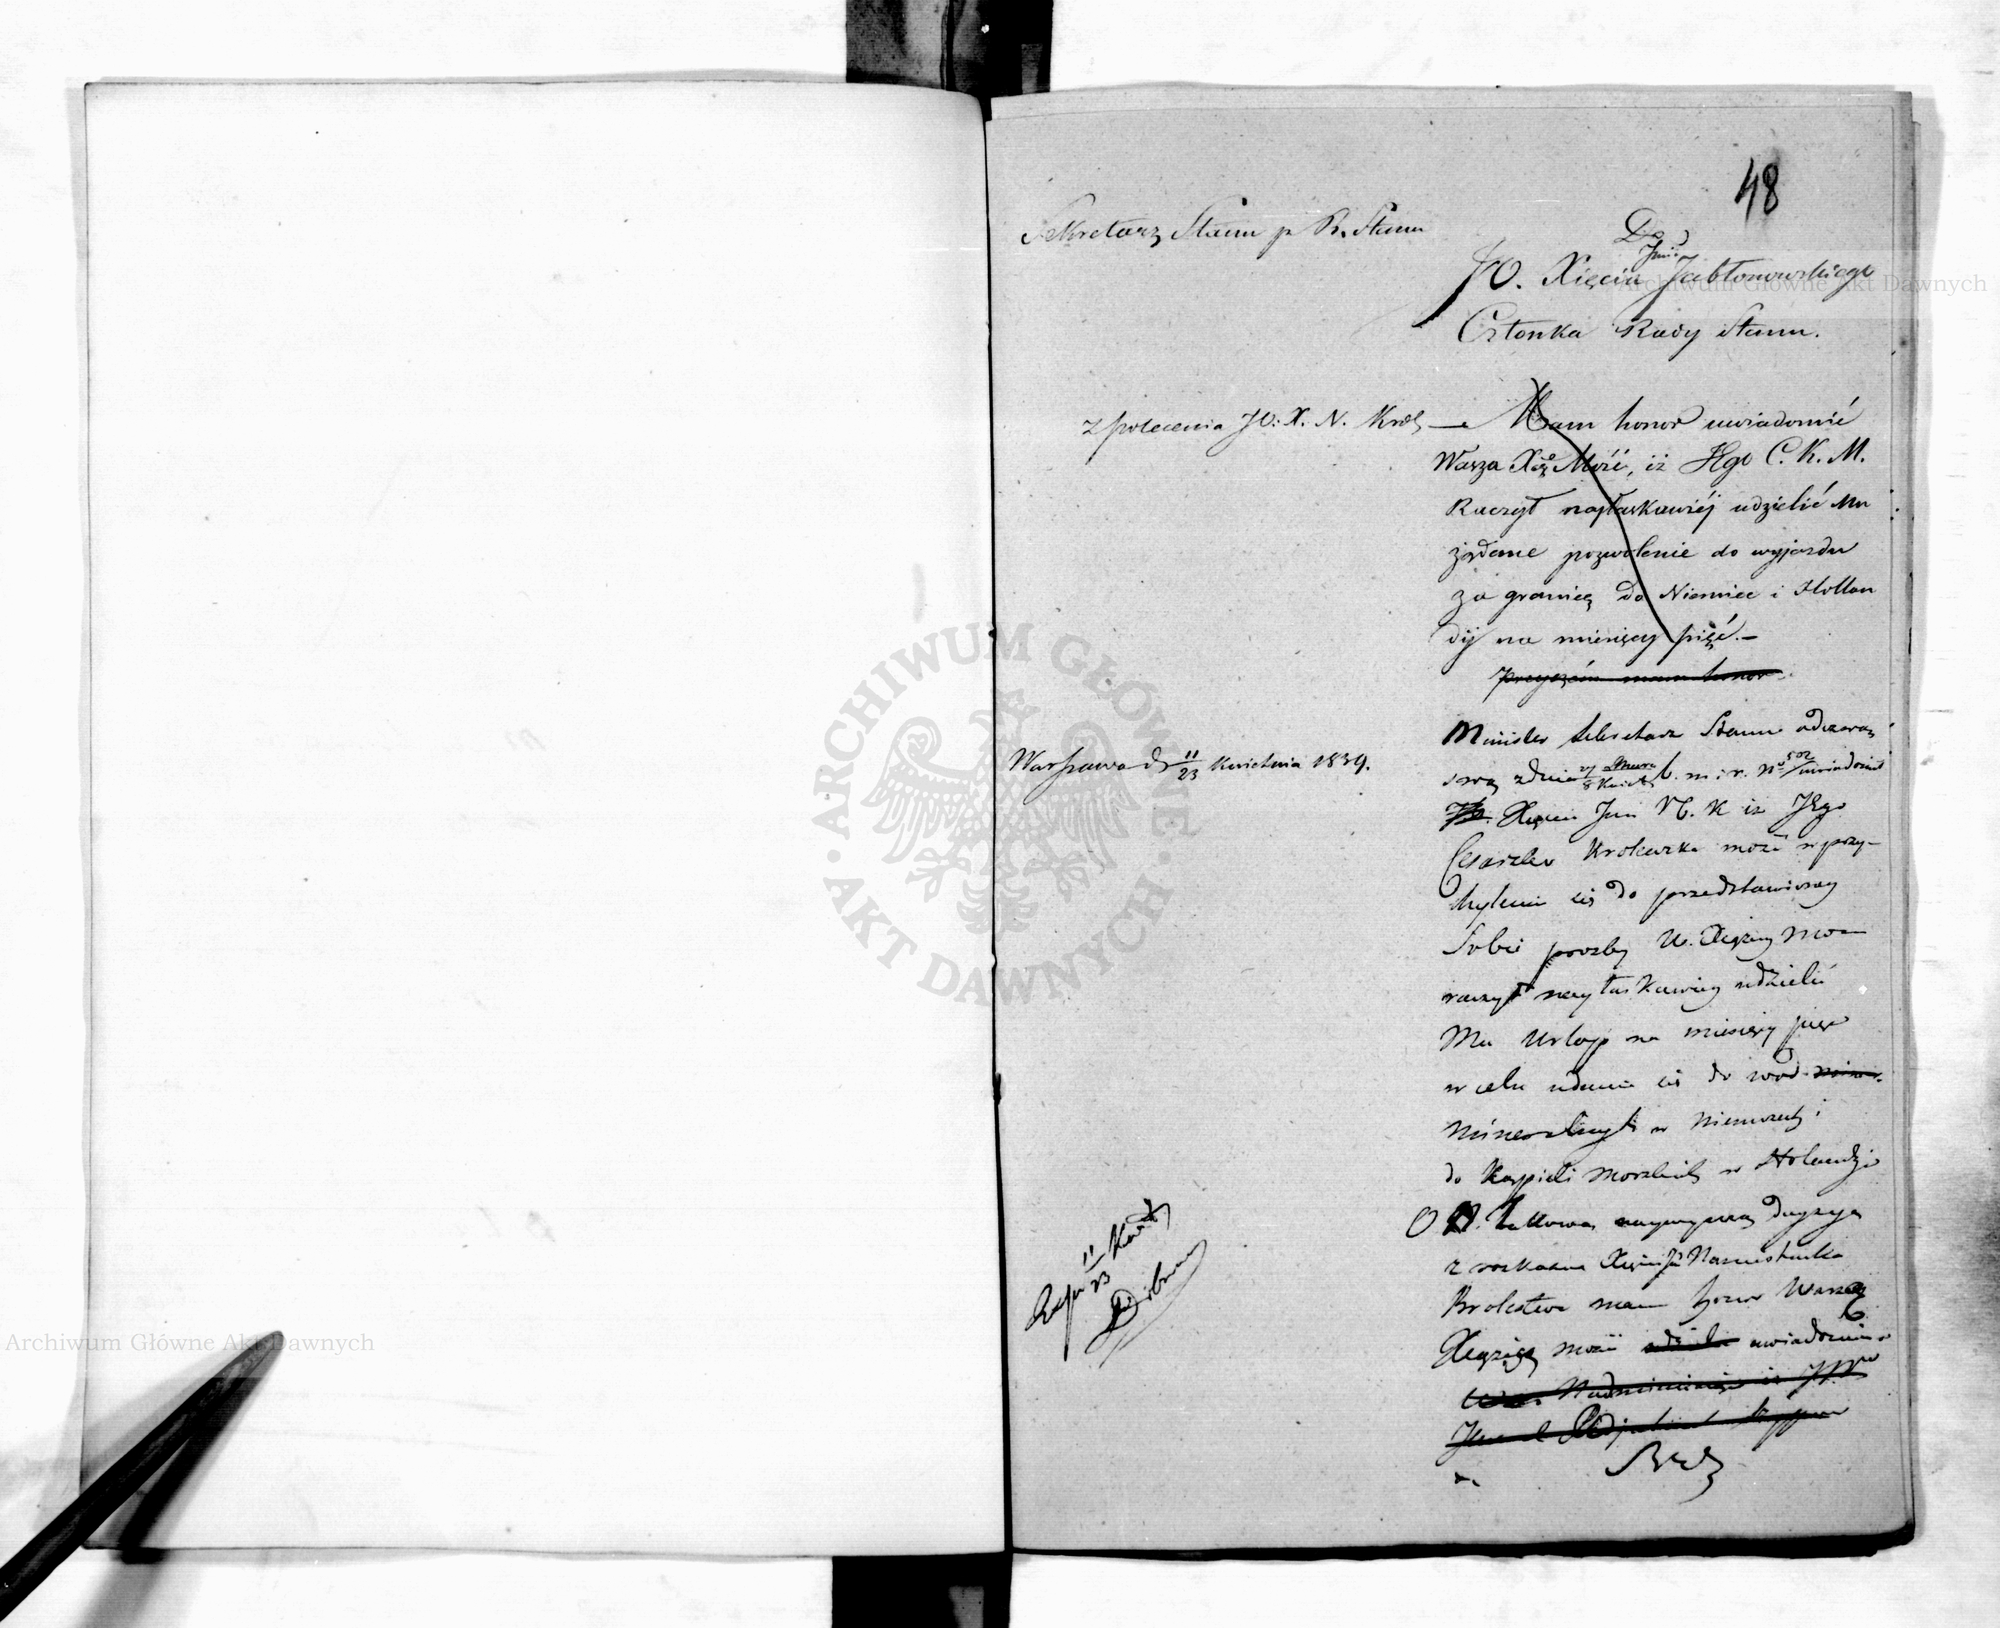 48
Sekretarz Stanu p. R. Stanu
Do
JO. Xięcia Jmći Jabłonowskiego
Członka Rady Stanu.
z polecenia JO: X. N. Król
Mam honor uwiadomić
Waszą Xżę Mość, iż Jego C. K. M.
Raczył najłaskawiéj udzielić Mu
żądane pozwolenie do wyjazdu
za granicę do Niemiec i Hollan
dij na miesięcy pięć.—
Przyczém mam honor
Warszawa d. 11/23 Kwietnia 1839.
Minister Sekretarz Stanu odezwą
swą z dnia 27 Marca/8 Kwiet. b. m. i r. No 502 uwiadomił
Xięcia Jmci N. K iż Jego
Cesarsko Krolewska mość w przy-
chyleniu się do przedstawioney
Sobie prozby W. Xiążęcy Mo
raczył nayłaskawiey udzielić
Mu Urlop na miesięcy pięć
w celu udania się do wód
Mineralnych w Niemczech i
do Kąpieli morskich w Holandyi
O takowey naywyższey decyzyi
z rozkazu Xięcia Jć Namiestnika
Krolestwa mam honor Waszą
Xiążęcą mość uwiadomić
Exp. 11/23 Kwiet.
ARCHIWUM GŁÓWNE
AKT DAWNYCH
Archiwum Główne Akt Dawnych
Archiwum Główne Akt Dawnych